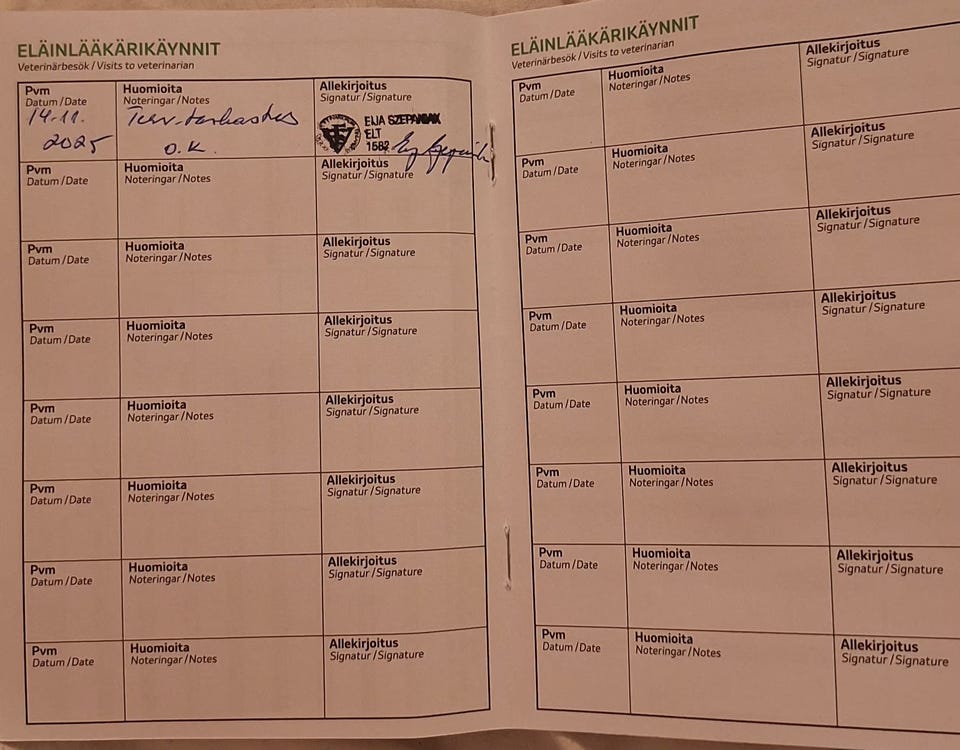 ELÄINLÄÄKÄRIKÄYNNIT
Veterinärbesök / Visits to veterinarian
Pvm Huomioita Allekirjoitus
Datum/Date Noteringar/Notes Signatur/Signature
14.11. Terv.tarkastus EIJA SZEPANIAK
ELT
2025 O.K. 1582
Pvm Huomioita Allekirjoitus
Datum/Date Noteringar/Notes Signatur/Signature
Pvm Huomioita Allekirjoitus
Datum/Date Noteringar/Notes Signatur/Signature
Pvm Huomioita Allekirjoitus
Datum/Date Noteringar/Notes Signatur/Signature
Pvm Huomioita Allekirjoitus
Datum/Date Noteringar/Notes Signatur/Signature
Pvm Huomioita Allekirjoitus
Datum/Date Noteringar/Notes Signatur/Signature
Pvm Huomioita Allekirjoitus
Datum/Date Noteringar/Notes Signatur/Signature
Pvm Huomioita Allekirjoitus
Datum/Date Noteringar/Notes Signatur/Signature
ELÄINLÄÄKÄRIKÄYNNIT
Veterinärbesök / Visits to veterinarian
Pvm Huomioita Allekirjoitus
Datum/Date Noteringar/Notes Signatur/Signature
Pvm Huomioita Allekirjoitus
Datum/Date Noteringar/Notes Signatur/Signature
Pvm Huomioita Allekirjoitus
Datum/Date Noteringar/Notes Signatur/Signature
Pvm Huomioita Allekirjoitus
Datum/Date Noteringar/Notes Signatur/Signature
Pvm Huomioita Allekirjoitus
Datum/Date Noteringar/Notes Signatur/Signature
Pvm Huomioita Allekirjoitus
Datum/Date Noteringar/Notes Signatur/Signature
Pvm Huomioita Allekirjoitus
Datum/Date Noteringar/Notes Signatur/Signature
Pvm Huomioita Allekirjoitus
Datum/Date Noteringar/Notes Signatur/Signature